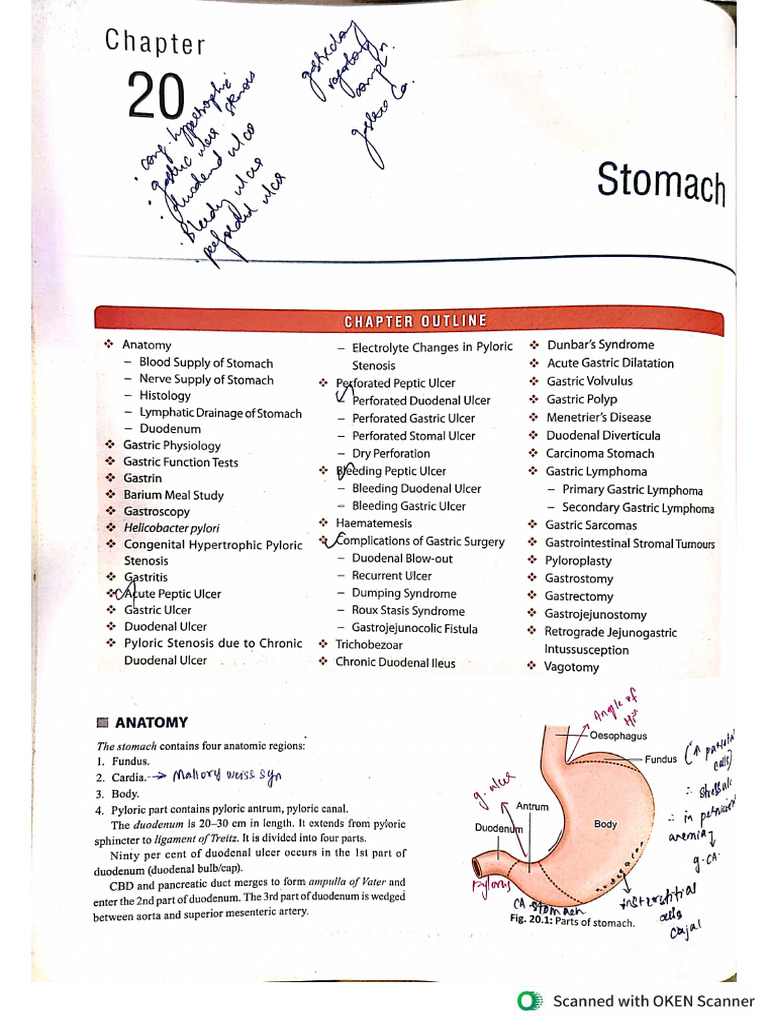 Chapter
20
· cong. hypertrophic stenosis
· gastric ulcer
· duodenal ulcer
· Bleeding ulcer
· perforated ulcer
gastrectomy
vagotomy
compl n.
gastric Ca.
Stomach
CHAPTER OUTLINE
❖ Anatomy
– Blood Supply of Stomach
– Nerve Supply of Stomach
– Histology
– Lymphatic Drainage of Stomach
– Duodenum
❖ Gastric Physiology
❖ Gastric Function Tests
❖ Gastrin
❖ Barium Meal Study
❖ Gastroscopy
❖ Helicobacter pylori
❖ Congenital Hypertrophic Pyloric
Stenosis
❖ Gastritis
❖ Acute Peptic Ulcer
❖ Gastric Ulcer
❖ Duodenal Ulcer
❖ Pyloric Stenosis due to Chronic
Duodenal Ulcer
– Electrolyte Changes in Pyloric
Stenosis
❖ Perforated Peptic Ulcer
– Perforated Duodenal Ulcer
– Perforated Gastric Ulcer
– Perforated Stomal Ulcer
– Dry Perforation
❖ Bleeding Peptic Ulcer
– Bleeding Duodenal Ulcer
– Bleeding Gastric Ulcer
❖ Haematemesis
❖ Complications of Gastric Surgery
– Duodenal Blow-out
– Recurrent Ulcer
– Dumping Syndrome
– Roux Stasis Syndrome
– Gastrojejunocolic Fistula
❖ Trichobezoar
❖ Chronic Duodenal Ileus
❖ Dunbar's Syndrome
❖ Acute Gastric Dilatation
❖ Gastric Volvulus
❖ Gastric Polyp
❖ Menetrier's Disease
❖ Duodenal Diverticula
❖ Carcinoma Stomach
❖ Gastric Lymphoma
– Primary Gastric Lymphoma
– Secondary Gastric Lymphoma
❖ Gastric Sarcomas
❖ Gastrointestinal Stromal Tumours
❖ Pyloroplasty
❖ Gastrostomy
❖ Gastrectomy
❖ Gastrojejunostomy
❖ Retrograde Jejunogastric
Intussusception
❖ Vagotomy
ANATOMY
The stomach contains four anatomic regions:
1. Fundus.
2. Cardia. → Mallory weiss syn
3. Body.
4. Pyloric part contains pyloric antrum, pyloric canal.
The duodenum is 20–30 cm in length. It extends from pyloric
sphincter to ligament of Treitz. It is divided into four parts.
Ninty per cent of duodenal ulcer occurs in the 1st part of
duodenum (duodenal bulb/cap).
CBD and pancreatic duct merges to form ampulla of Vater and
enter the 2nd part of duodenum. The 3rd part of duodenum is wedged
between aorta and superior mesenteric artery.
Angle of
His
Oesophagus
Fundus
(↑ parietal
cells)
∴ in pernicious
anemia
g-CA.
g. ulcer
Antrum
Duodenum
Body
Pylorus
CA-stomach
interstitial
cells
cajal
Fig. 20.1: Parts of stomach.
Scanned with OKEN Scanner